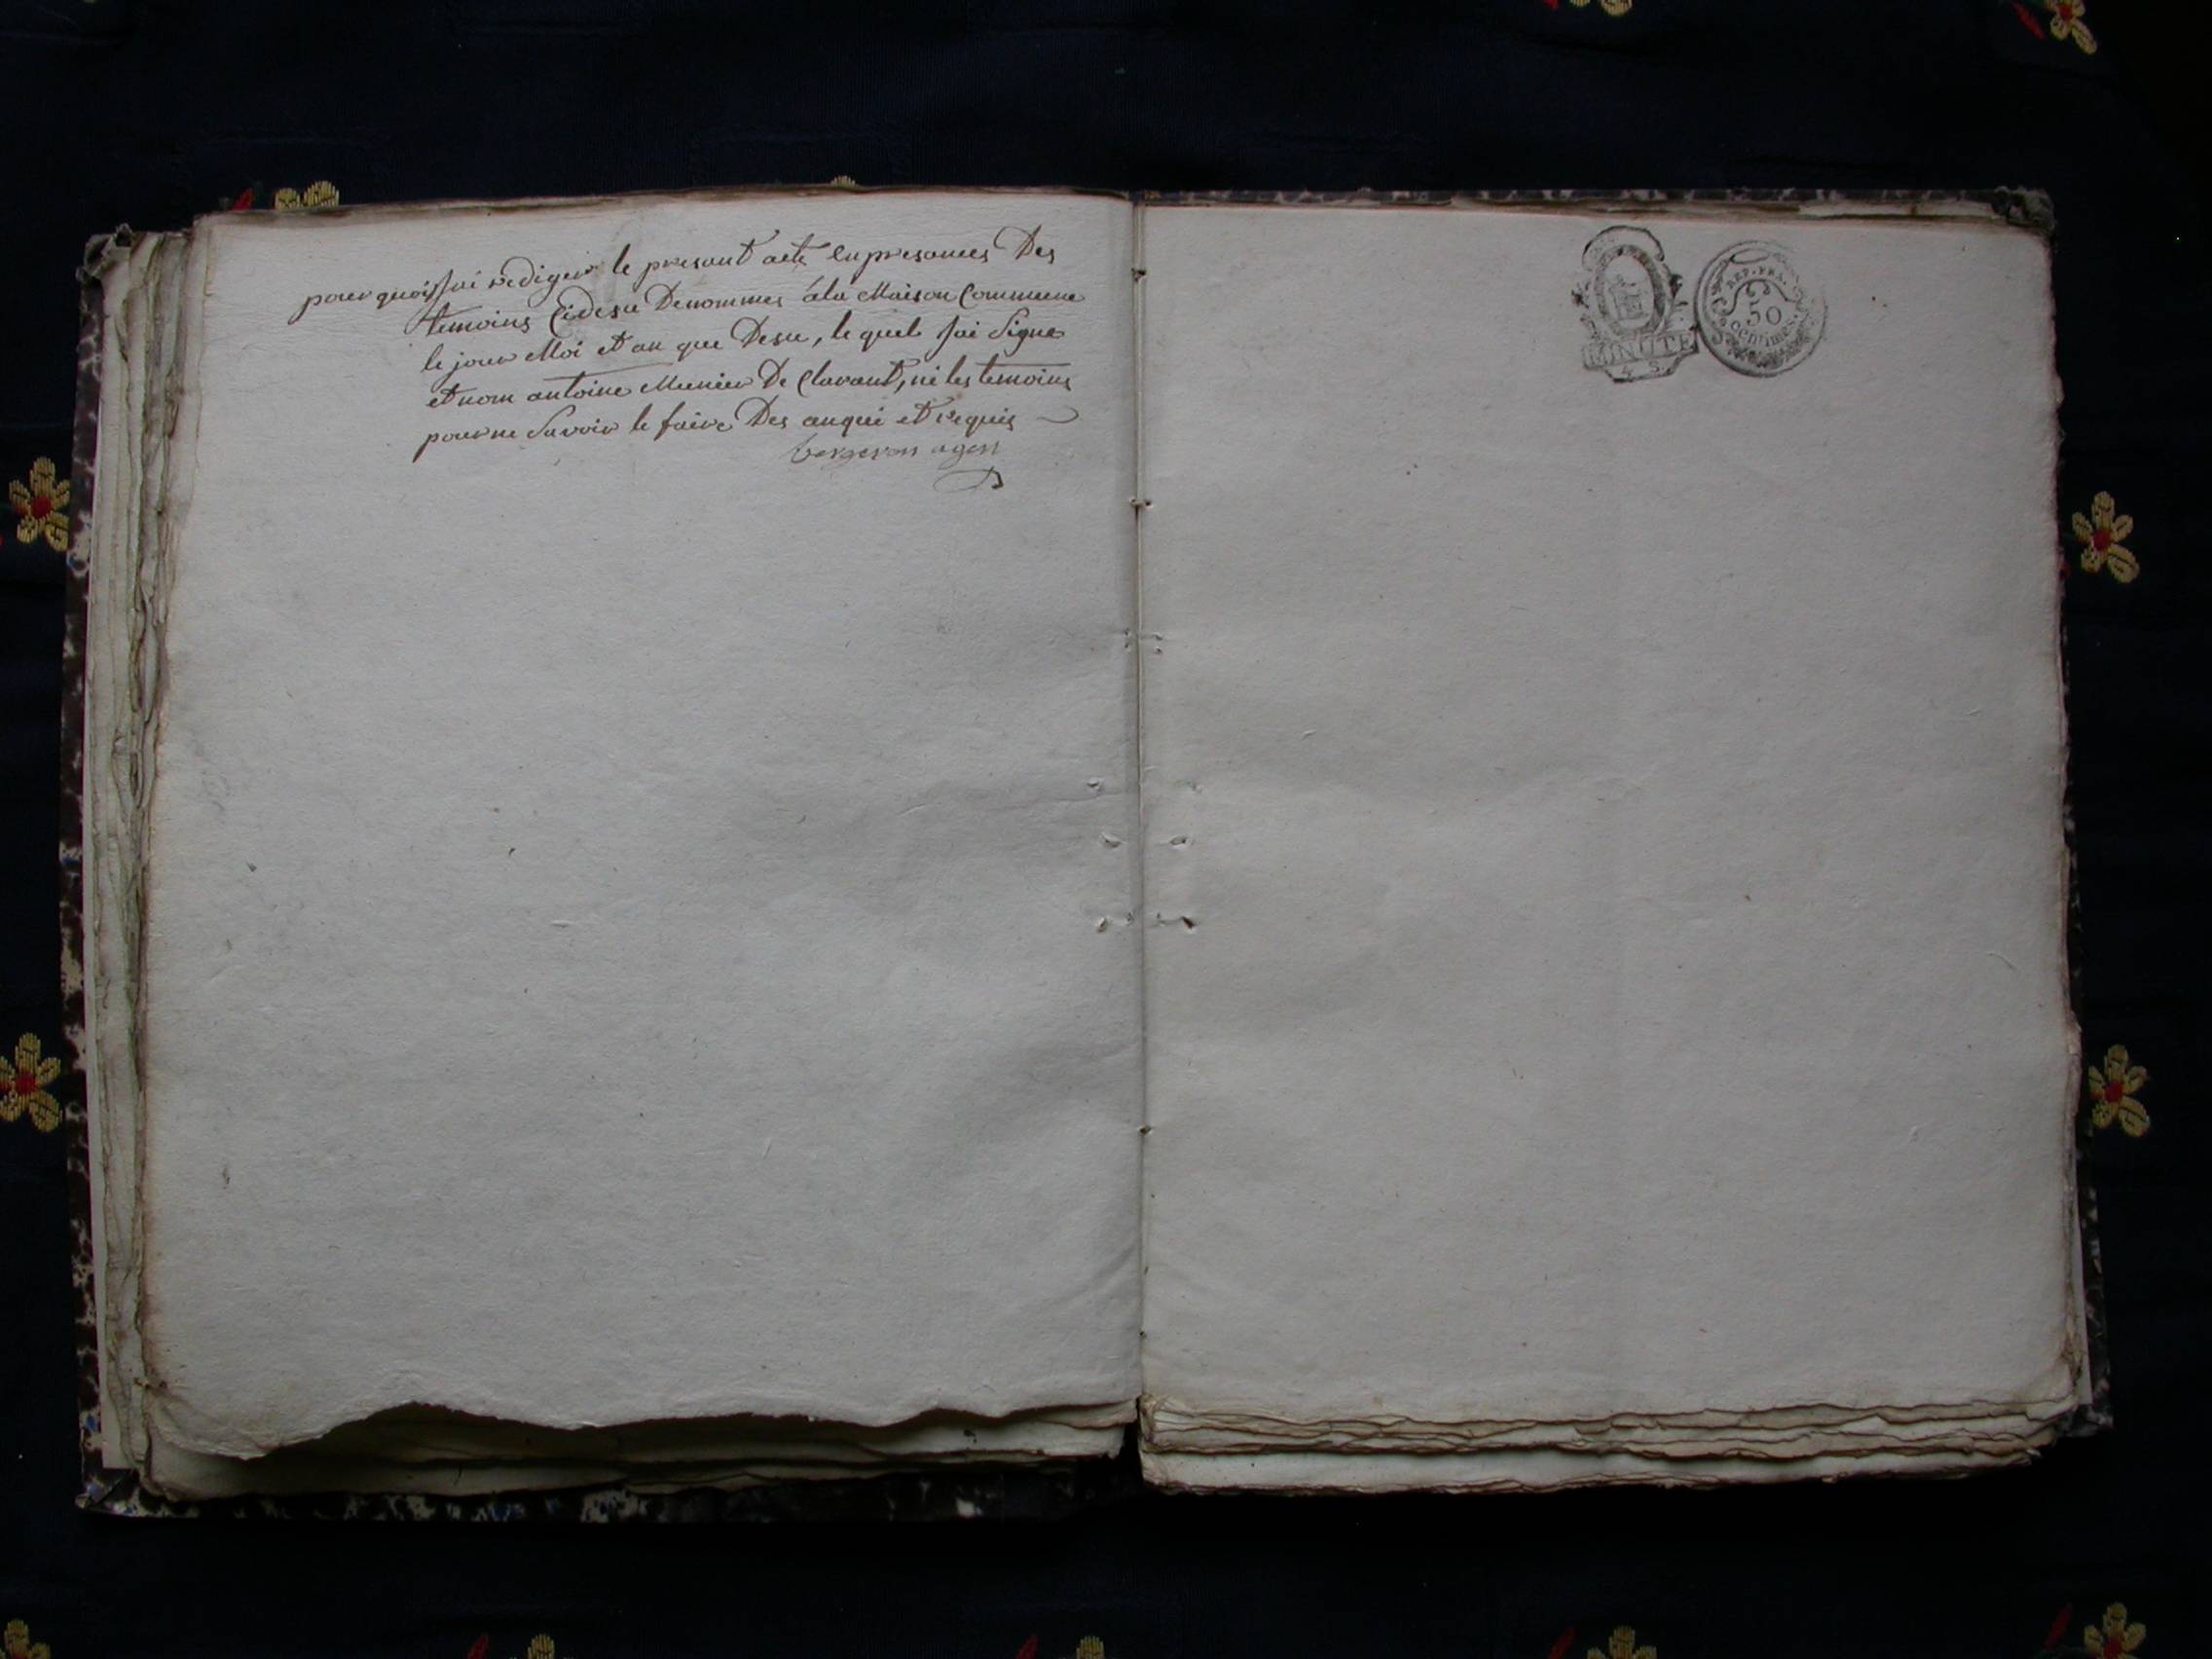 pourquois Jai rediger le presant acte enpresances Des
temoins Cidesu Denommes á la Maison Commune
le jour Moi et an que Desu, le quel Jai Signe
et nom antoine Meunier De Clavant, ni les temoins
pour ne Savoir le faire Des anqui et requis
bergeron agen
MINUTE
4 S.
REP. FRA.
50
centimes.